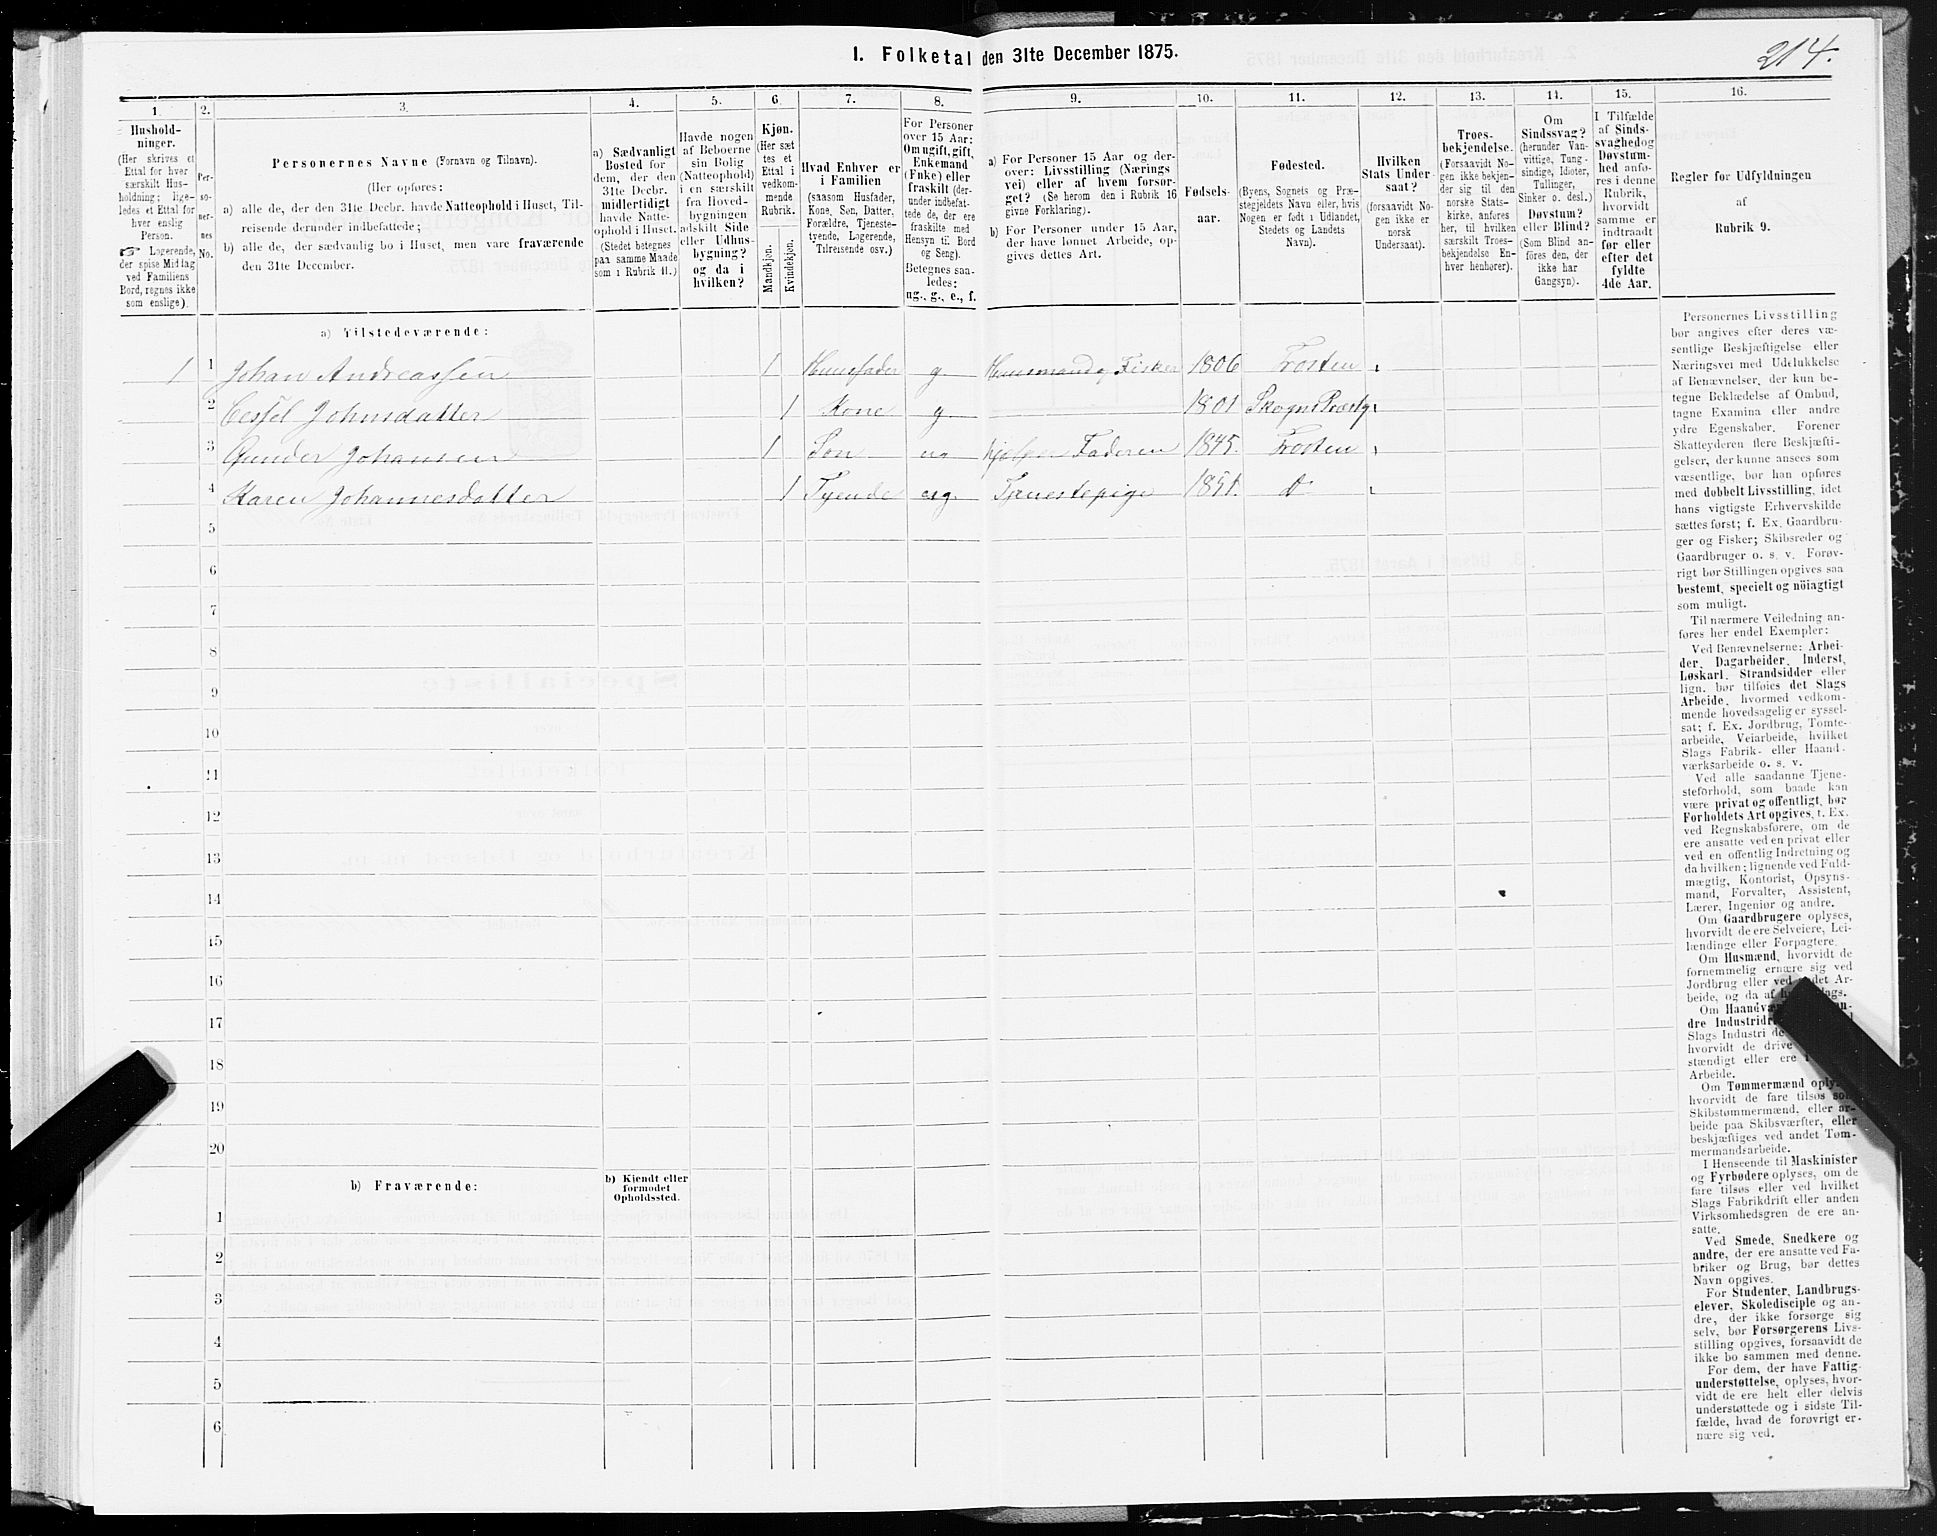 I. Folketal den 31te December 1875.
214.
1. 2. 3. 4. 5. 6. 7. 8. 9. 10. 11. 12. 13. 14. 15. 16.
Hushold-
ninger.
(Her skrives et
Ettal for hver
særskilt Hus-
holdning; lige-
ledes et Ettal for
hver enslig
Person.
☞ Logerende,
der spise Middag
ved Familiens
Bord, regnes ikke
som enslige).
Per-
so-
ner-
nes
No.
Personernes Navne (Fornavn og Tilnavn).
(Her opføres:
a) alle de, der den 31te Decbr. havde Natteophold i Huset, Til-
reisende derunder indbefattede;
b) alle de, der sædvanlig bo i Huset, men vare fraværende
den 31te December.
a) Sædvanligt
Bosted for
dem, der den
31te Decbr.
midlertidigt
havde Natte-
ophold i Huset.
(Stedet betegnes
paa samme Maade
som i Rubrik 11.)
Havde nogen
af Beboerne
sin Bolig
(Natteophold)
i en særskilt
fra Hoved-
bygningen
adskilt Side
eller Udhus-
bygning?
og da i
hvilken?
Kjøn.
(Her sæt
tes et
Ettal i
vedkom-
mende
Rubrik.
Mandkjøn.
Kvindekjøn.
Hvad Enhver er
i Familien
(saasom Husfader,
Kone, Søn, Datter,
Forældre, Tjeneste-
tyende, Logerende,
Tilreisende osv.)
For Personer
over 15 Aar:
Om ugift, gift,
Enkemand
(Enke) eller
fraskilt (der-
under indbefat-
tede de, der ere
fraskilte med
Hensyn til Bord
og Seng).
Betegnes saa-
ledes:
ug., g., e., f.
a) For Personer 15 Aar og der-
over: Livsstilling (Nærings
vei) eller af hvem forsør-
get? (Se herom den i Rubrik 16
givne Forklaring).
b) For Personer under 15 Aar,
der have lønnet Arbeide, op-
gives dettes Art.
Fødsels-
aar.
Fødested.
(Byens, Sognets og Præ-
stegjeldets Navn eller, hvis
Nogen er født i Udlandet,
Stedets og Landets
Navn).
Hvilken
Stats Under-
saat?
(forsaavidt No-
gen ikke er
norsk
Undersaat).
Troes-
bekjendelse.
(Forsaavidt No-
gen ikke bekjen-
der sig til den
norske Stats-
kirke, anføres
her, til hvilken
særskilt Troes-
bekjendelse En-
hver henhører).
Om
Sindssvag?
(herunder Van-
vittige, Tung-
sindige, Idioter,
Tullinger,
Sinker o. desl.)
Døvstum?
eller Blind?
(Som Blind an-
føres den, der
ikke har
Gangsyn).
I Tilfælde
af Sinds-
svaghed og
Døvstum-
hed anfø-
res i denne
Rubrik,
hvorvidt
samme er
indtraadt
før eller
efter det
fyldte
4de Aar.
Regler for Udfyldningen
af
Rubrik 9.
a) Tilstedeværende:
1 1 Johan Andreassen 1 Huusfader g. Huusmand og Fisker 1806 Frosten
2 Cessel Johnsdatter 1 Kone g. 1801 Skogn Præstg
3 Gunder Johansen 1 Søn ug hjelper Faderen 1845. Frosten
4 Karen Johannesdatter 1 Tyende ug. Tjenestepige 1851.
5
6
7
8
9
10
11
12
13
14
15
16
17
18
19
20
b) Fraværende:
b) Kjendt eller
formodet
Opholdssted.
1
2
3
4
5
6
Personernes Livsstilling
bør angives efter deres væ-
sentlige Beskjæftigelse eller
Næringsvei med Udelukkelse
af Benævnelser, der kun be-
tegne Beklædelse af Ombud,
tagne Examina eller andre
ydre Egenskaber. Forener
Skatteyderen flere Beskjæfti-
gelser, der kunne ansees som
væsentlige, bør han opføres
med dobbelt Livsstilling, idet
hans vigtigste Erhvervskilde
sættes først; f. Ex. Gaardbru-
ger og Fisker; Skibsreder og
Gaardbruger o. s. v. Forøv-
rigt bør Stillingen opgives saa
bestemt, specielt og nöiagtigt
som muligt.
Til nærmere Veiledning an-
føres her endel Exempler:
Ved Benævnelserne: Arbei-
der, Dagarbeider, Inderst,
Løskarl, Strandsidder eller
lign. bør tilføies det Slags
Arbeide, hvormed vedkom-
mende hovedsagelig er syssel-
sat; f. Ex. Jordbrug, Tomte-
arbeide, Veiarbeide, hvilket
Slags Fabrik- eller Haand-
værksarbeide o. s. v.
Ved alle saadanne Tjene-
steforhold, som baade kan
være privat og offentligt, bør
Forholdets Art opgives, t. Ex.
ved Regnskabsførere, om de
ere ansatte ved en privat eller
ved en offentlig Indretning og
da hvilken; lignende ved Fuld-
mægtig, Kontorist, Opsyns-
mand, Forvalter, Assistent,
Lærer, Ingeniør og andre.
Om Gaardbrugere oplyses,
hvorvidt de ere Selveiere, Lei-
lændinge eller Forpagtere.
Om Husmænd, hvorvidt de
fornemmelig ernære sig ved
Jordbrug eller ved andet Ar-
beide, og da af
Om
dre Industridr
Slags Industri
hvorvidt de drive
stændigt eller ere
Arbeide.
Om Tømmermænd oplyses
hvorvidt de fare tilsøs som
Skibstømmermænd, eller ar-
beide paa Skibsværfter, eller
beskjæftiges ved andet Tøm-
mermandsarbeide.
I Henseende til Maskinister
og Fyrbødere oplyses, om de
fare tilsøs eller ved hvilket
Slags Fabrikdrift eller anden
Virksomhedsgren de ere an-
satte.
Ved Smede, Snedkere og
andre, der ere ansatte ved Fa-
briker og Brug, bør dettes
Navn opgives.
For Studenter, Landbrugs-
elever, Skoledisciple og an-
dre, der ikke forsørge sig
selv, bør Forsørgerens Livs-
stilling opgives, forsaavidt de
ikke bo sammen med denne.
For dem, der have Fattig-
understøttelse, oplyses, hvor-
vidt de ere helt eller delvis
understøttede og i sidste Til-
fælde, hvad de forøvrigt er-
nære sig ved.